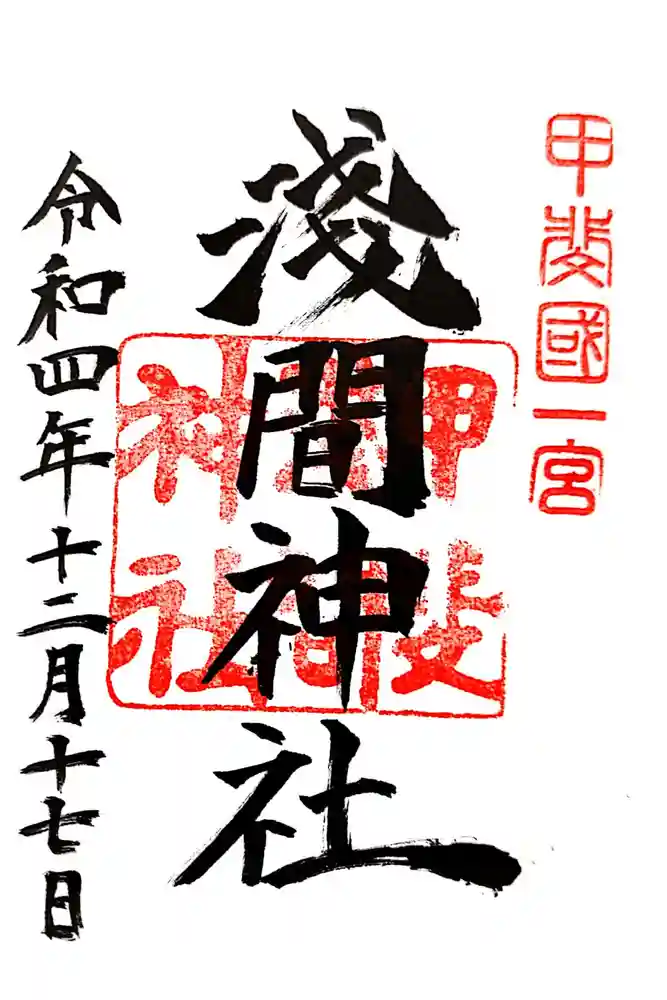 甲斐國一宮
淺間神社
甲斐
神社
令和四年十二月十七日